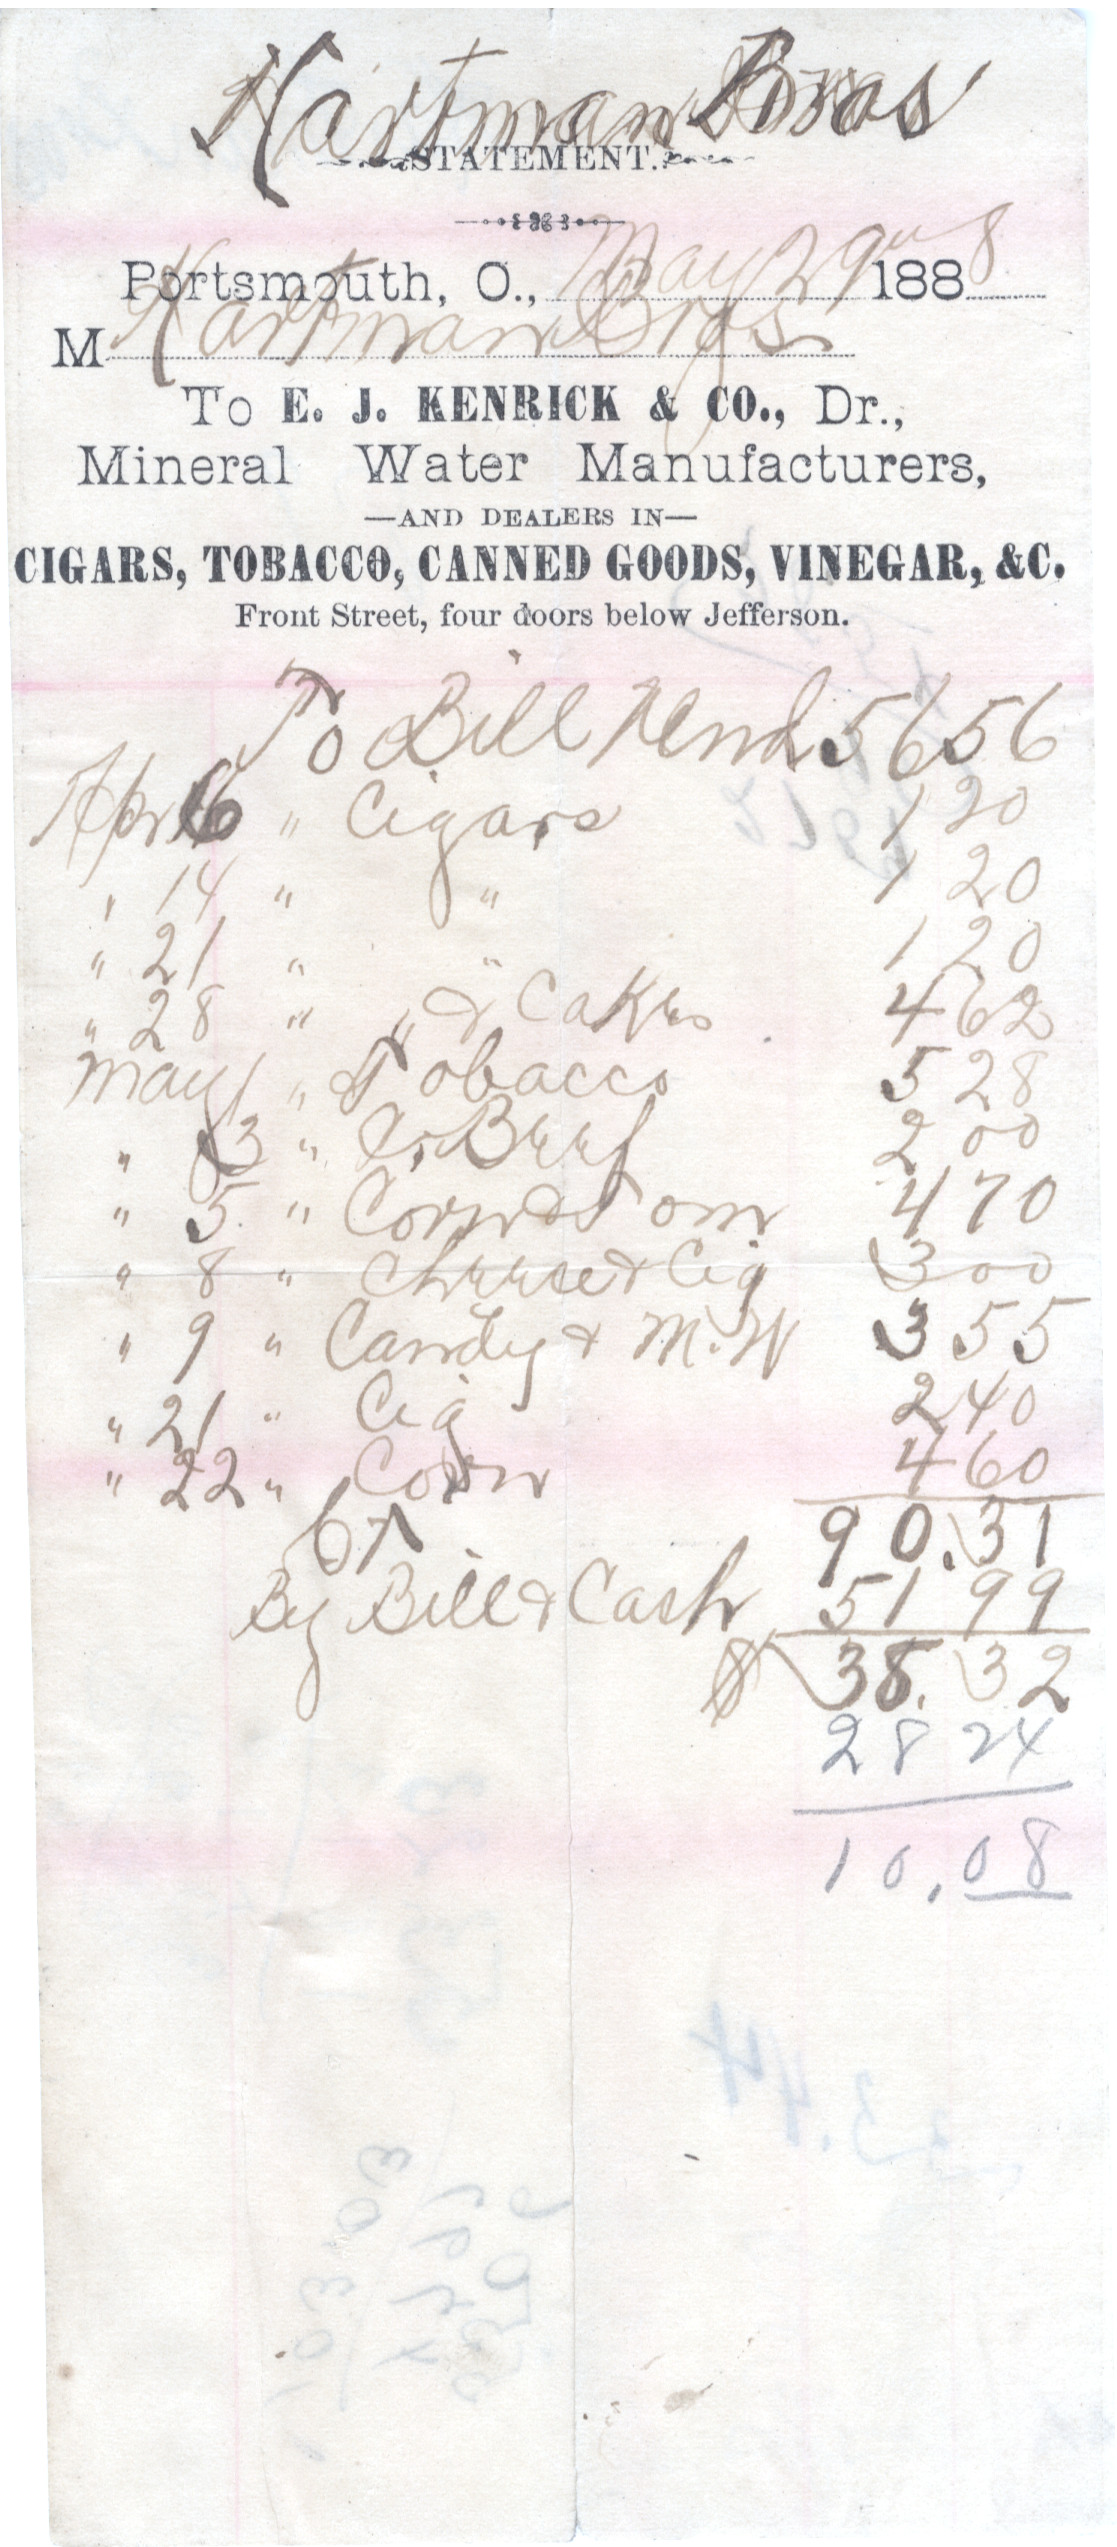 Hartman Bros
STATEMENT.
Portsmouth, O., May 29th 1888
M Hartman Bros
To E. J. KENRICK & CO., Dr.,
Mineral Water Manufacturers,
—AND DEALERS IN—
CIGARS, TOBACCO, CANNED GOODS, VINEGAR, &C.
Front Street, four doors below Jefferson.
To Bill Rend 56 56
Apr 6 " Cigars 1 20
" 14 " " 1 20
" 21 " " 1 20
" 28 " " & Cakes 4 62
May 1 " Tobacco 5 28
" 3 " C. Beef 2 00
" 5 " Corn & Tom 4 70
" 8 " Cheese & Cig 3 00
" 9 " Candy & M.W 3 55
" 21 " Cig 2 40
" 22 " Corn 4 60
90.31
Cr
By Bill & Cash 51 99
$ 38.32
28 24
10.08